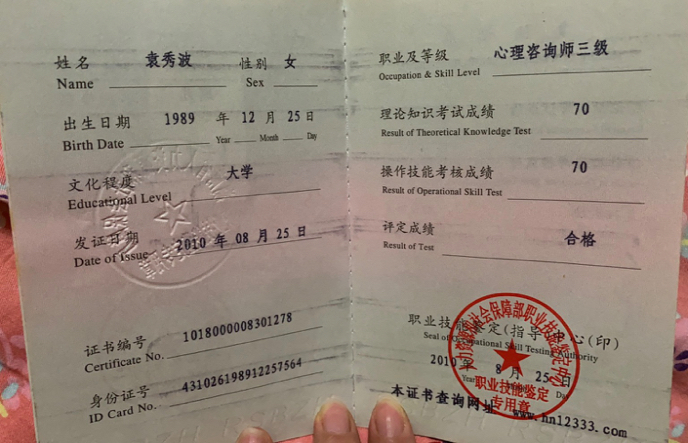 姓名 袁秀波 性别 女
Name Sex
出生日期 1989 年 12 月 25 日
Birth Date Year Month Day
文化程度 大学
Educational Level
发证日期 2010 年 08 月 25 日
Date of Issue
证书编号 1018000008301278
Certificate No.
身份证号 431026198912257564
ID Card No.
职业及等级 心理咨询师三级
Occupation & Skill Level
理论知识考试成绩 70
Result of Theoretical Knowledge Test
操作技能考核成绩 70
Result of Operational Skill Test
评定成绩 合格
Result of Test
职业技能鉴定(指导)中心(印)
Seal of Occupational Skill Testing Authority
2010 年 8 月 25 日
社会保障部职业技能鉴定中心
职业技能鉴定
专用章
本证书查询网址 www.hn12333.com